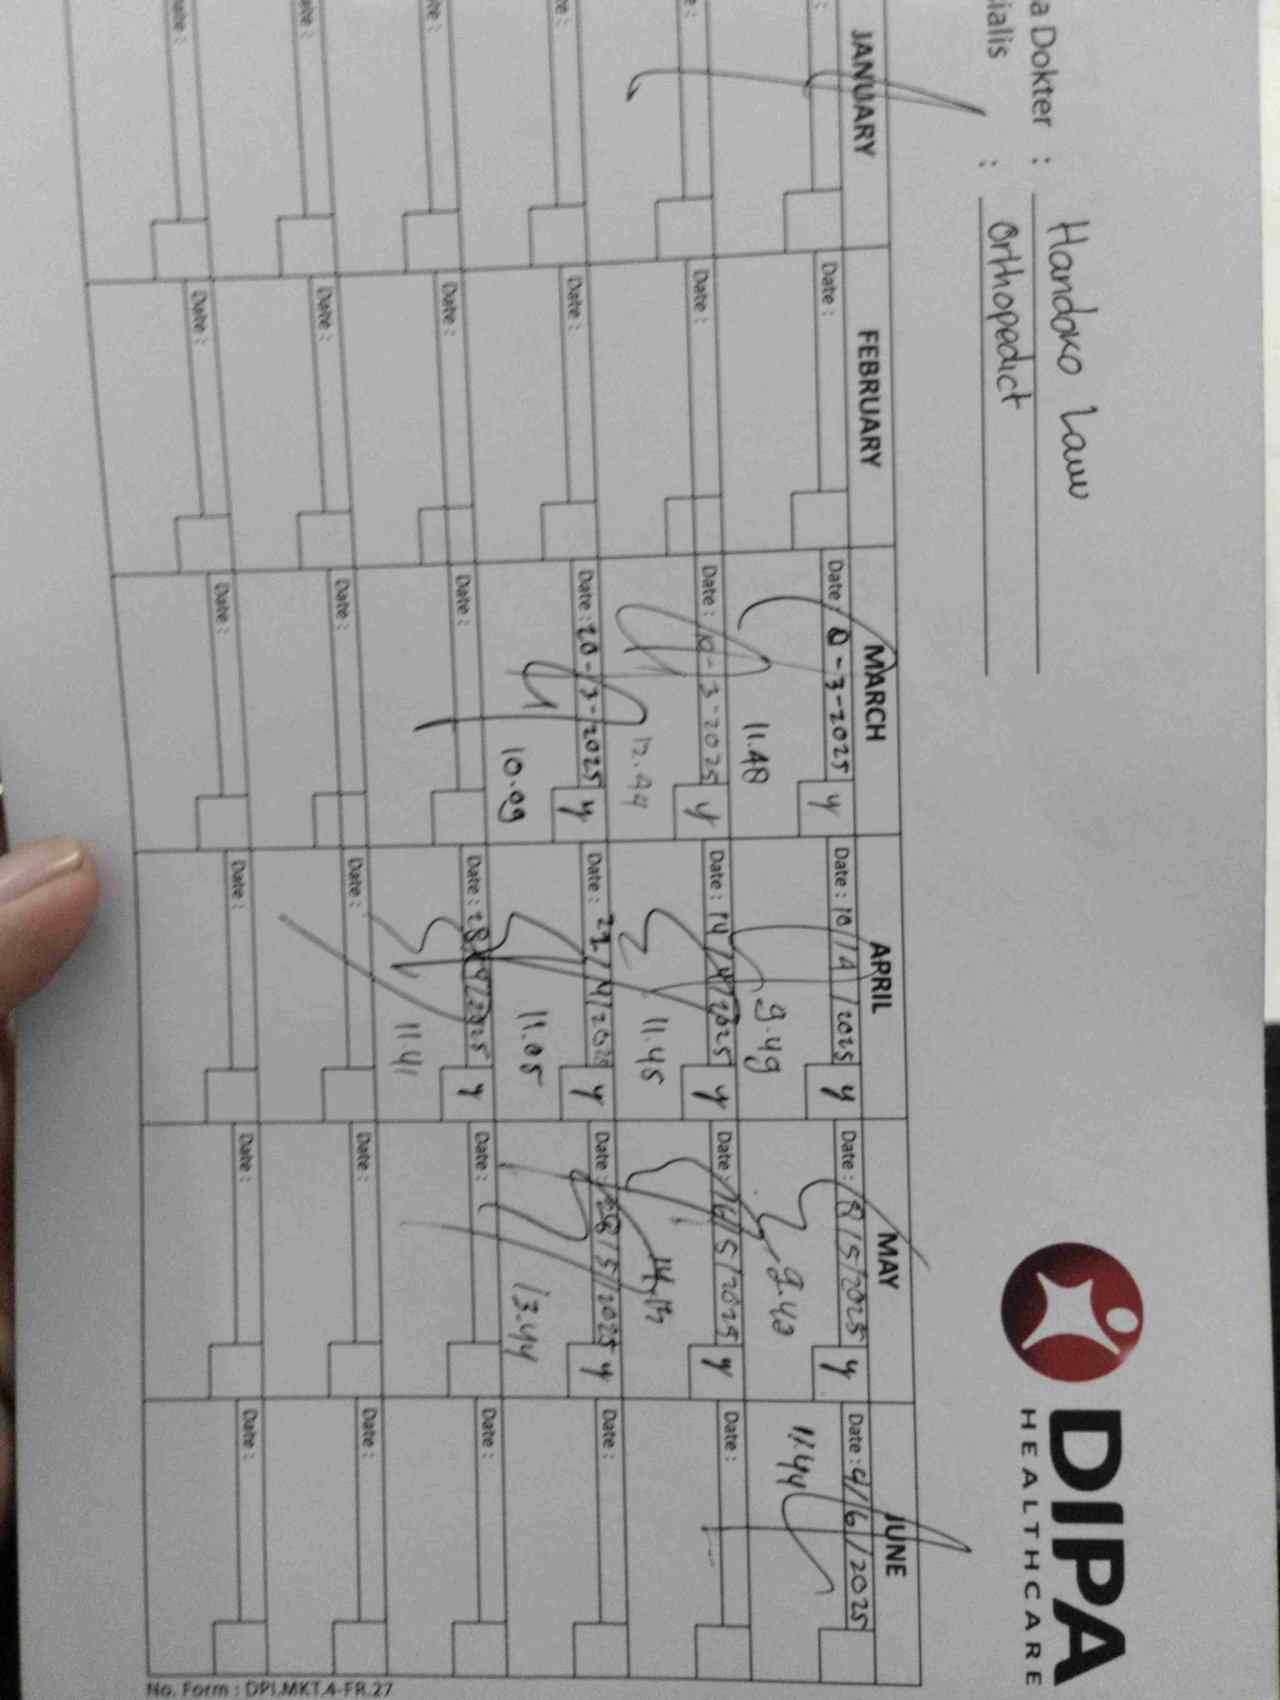 DIPA
HEALTHCARE
a Dokter : Handoko Lauw
ialis : Orthopedict
JANUARY FEBRUARY MARCH APRIL MAY JUNE
Date : Date : -3-2025 y Date : 10/4/2025 y Date : 8/5/2025 y Date : 4/6/2025
11.48 9.49 9.42 11.44
Date : Date : -3-2025 y Date : 14/4/2025 y Date : 16/5/2025 y Date :
12.44 11.45
Date : Date : 20-3-2025 y Date : 22/4/2025 y Date : 28/5/2025 y Date :
10.09 11.05 13.44
Date : Date : Date : 28/4/2025 y Date : Date :
11.41
Date : Date : Date : Date : Date : Date :
Date : Date : Date : Date : Date : Date :
No. Form : DPI.MKT.4-FR.27